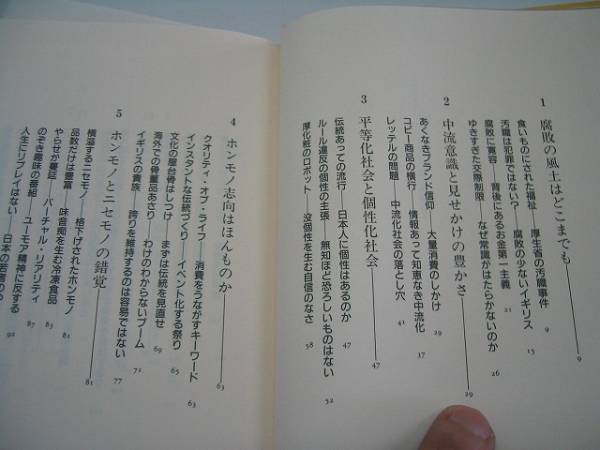 1 腐敗の風土はどこまでも 9
食いものにされた福祉 厚生省の汚職事件 9
汚職は犯罪ではない? 腐敗の少ないイギリス 15
腐敗に寛容――背後にあるお金第一主義 21
ゆきすぎた交際制限 なぜ常識がはたらかないのか 26
2 中流意識と見せかけの豊かさ 29
あくなきブランド信仰 大量消費のしかけ 29
コピー商品の横行 情報あって知恵なき中流化 39
レッテルの問題 中流化社会の落とし穴 41
3 平等化社会と個性化社会 47
伝統あっての流行 日本人に個性はあるのか 47
ルール違反の個性の主張 無知ほど恐ろしいものはない 52
厚化粧のロボット――没個性を生む自信のなさ 58
4 ホンモノ志向はほんものか 63
クオリティ・オブ・ライフ 消費をうながすキーワード 63
インスタントな伝統づくり イベント化する祭り 65
文化の屋台骨はしつけ まずは伝統を見直せ 69
海外での骨董品あさり わけのわからないブーム 71
イギリスの貴族――誇りを維持するのは容易ではない 77
5 ホンモノとニセモノの錯覚 81
横溢するニセモノ 格下げされたホンモノ 81
品数だけは豊富 味音痴を生む冷凍食品 83
やらせが蔓延 バーチャル・リアリティ 87
のぞき趣味の番組 ユーモア精神に反する
人生にリプレイはない 日本の若者の 92